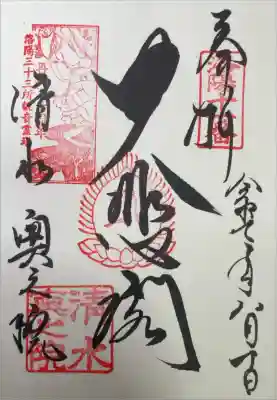 奉拝
令和七年八月十日
大悲閣
清水
奥之院
洛陽三十三所観音霊場
清水
奥之院